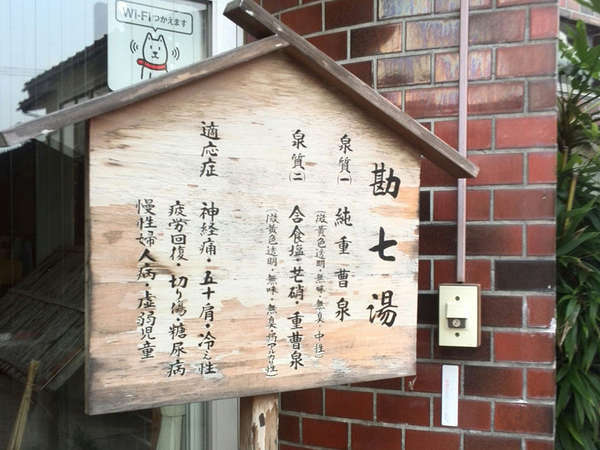 Wi-Fiつかえます
勘七湯
泉質(一) 純重曹泉
(微黄色透明・無味・無臭・中性)
泉質(二) 含食塩・芒硝・重曹泉
(微黄色透明・無味・無臭・弱アルカリ性)
適応症 神経痛・五十肩・冷え性
疲労回復・切り傷・糖尿病
慢性婦人病・虚弱児童